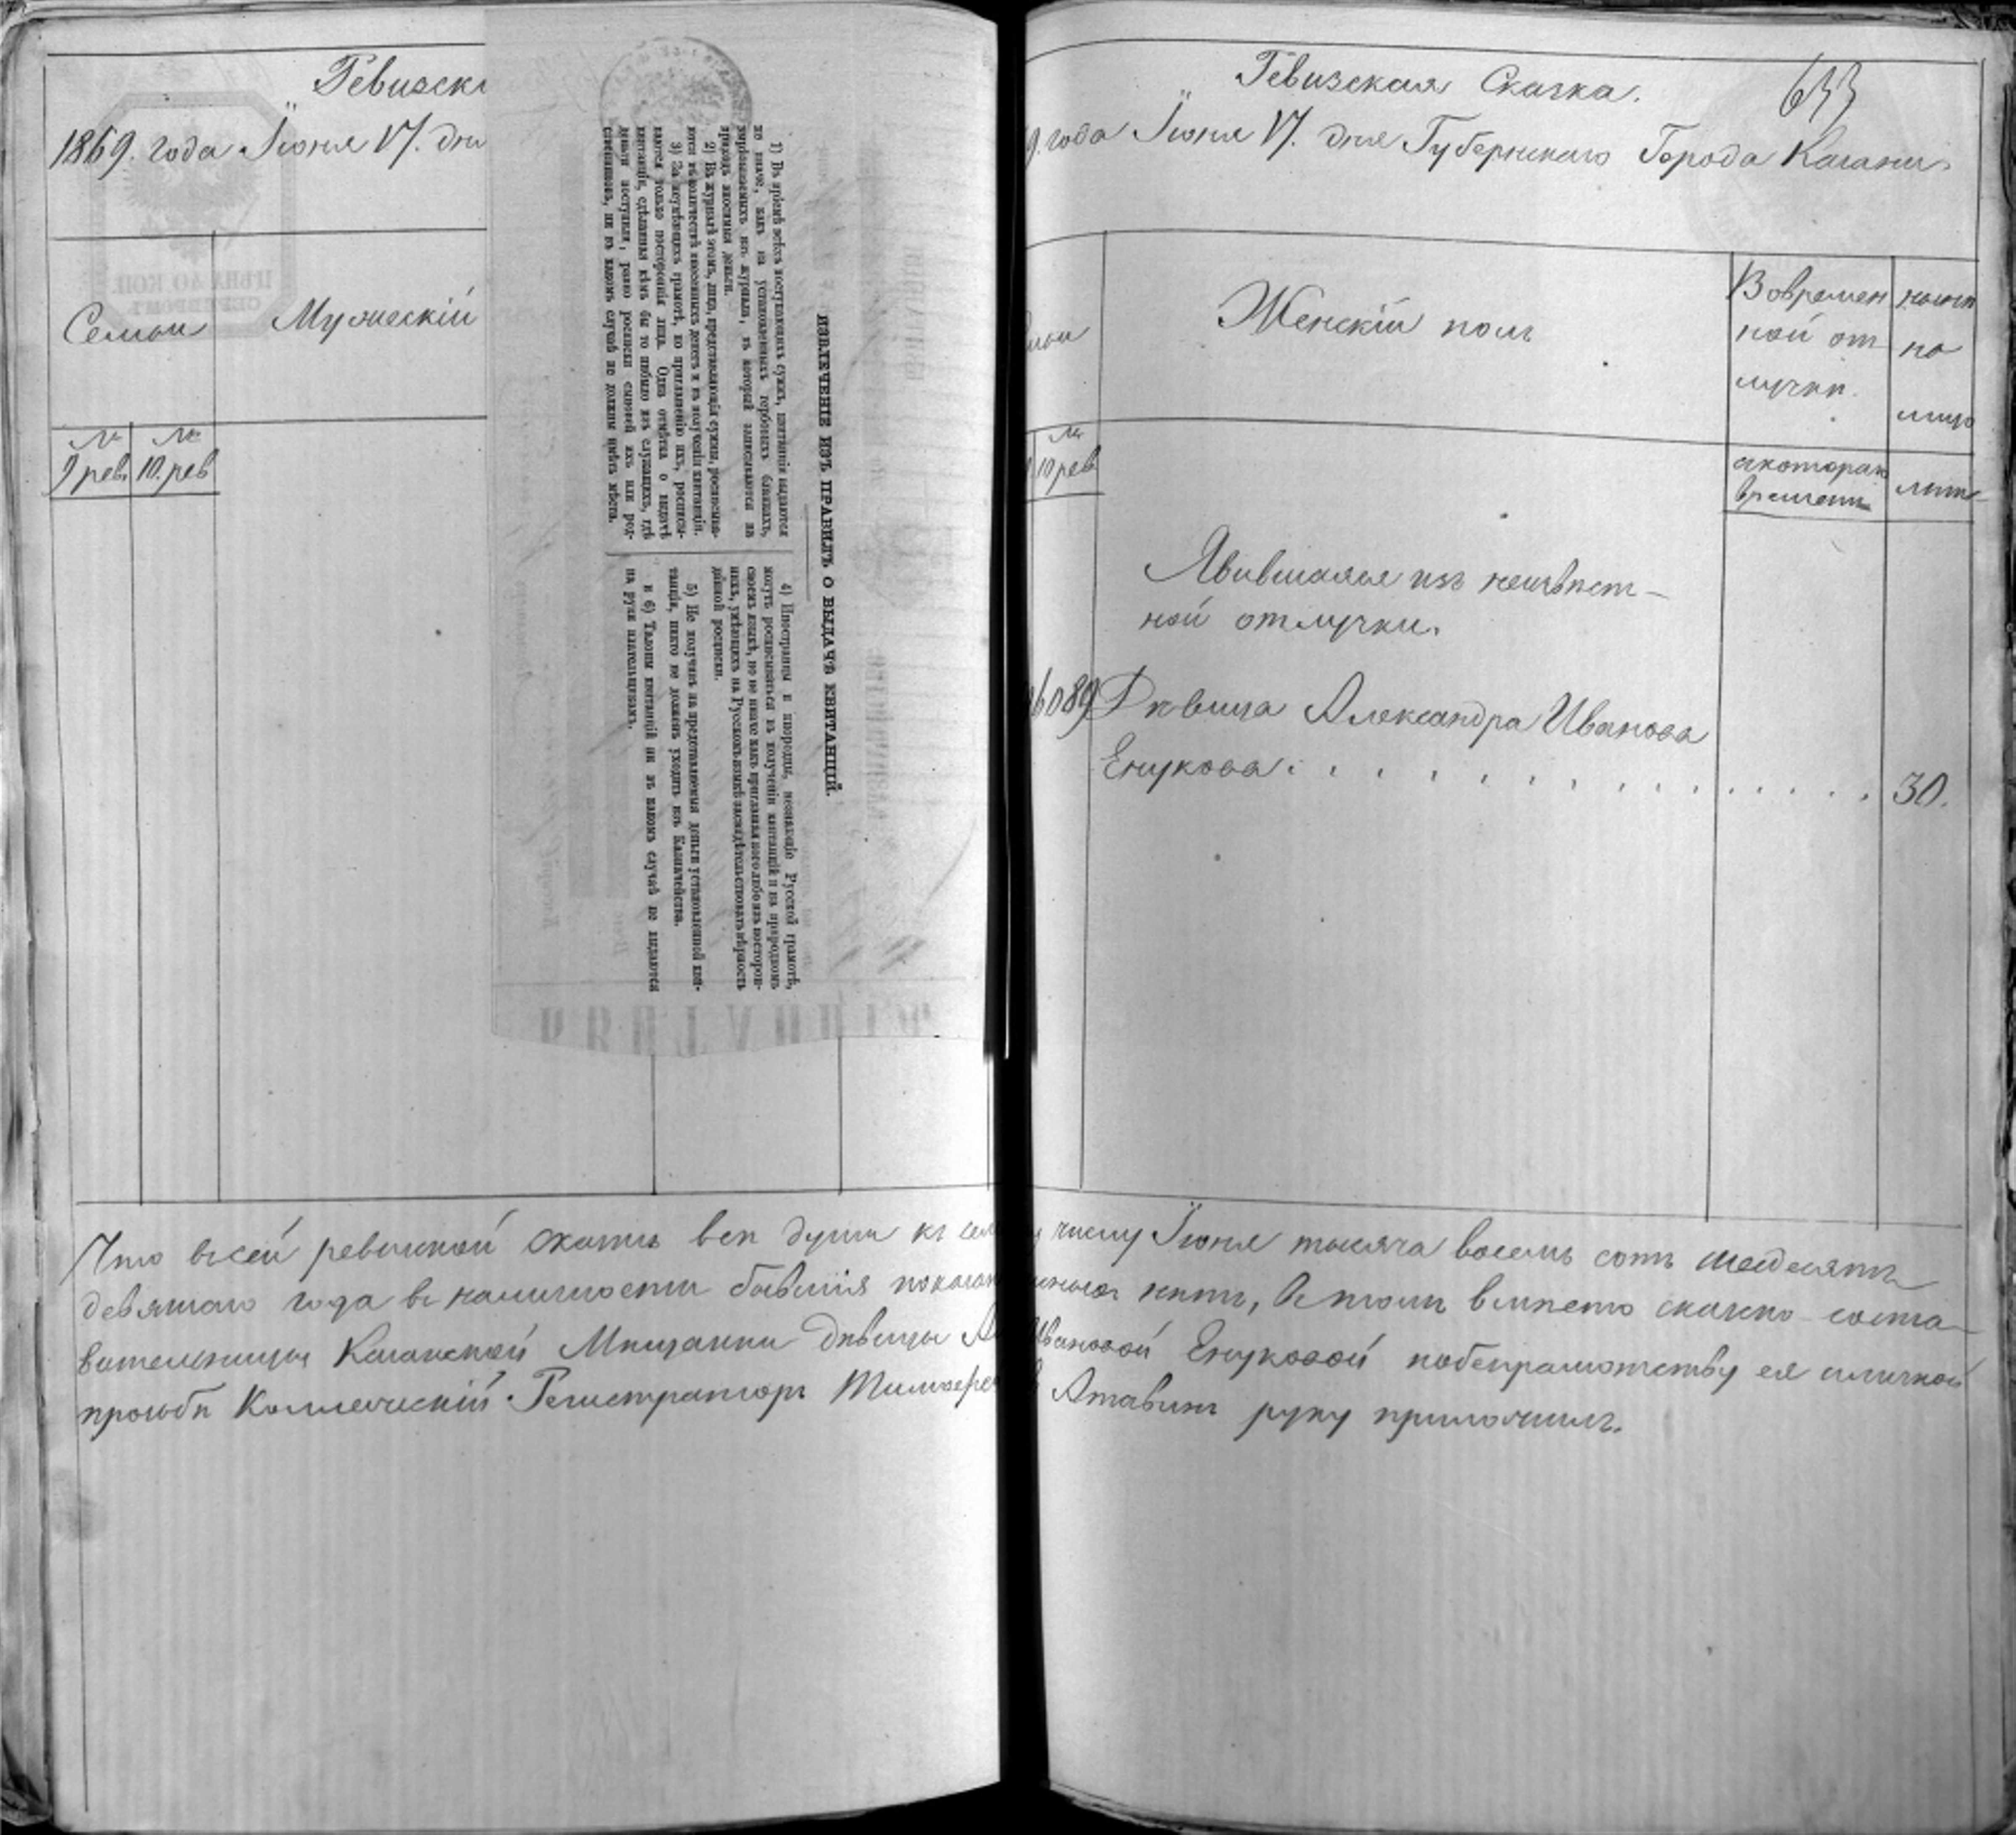 Ревизска
1869. года Іюня 17. дня
Семьи
Мужескій
№ №
9 рев. 10. рев
ЦѢНА 40 КОП.
ИЗВЛЕЧЕНІЕ ИЗЪ ПРАВИЛЪ О ВЫДАЧѢ КВИТАНЦІЙ.
1) Въ пріемѣ всѣхъ поступающихъ суммъ, квитанціи выдаются
не иначе, какъ на установленныхъ гербовыхъ бланкахъ,
вырѣзываемыхъ изъ журнала, въ который записываются на
приходъ вносимыя деньги.
2) Въ журналѣ этомъ, лица, представляющія суммы, росписыва-
ются въ количествѣ вносимыхъ денегъ и въ полученіи квитанціи.
3) За неумѣющихъ грамотѣ, по приглашенію ихъ, росписы-
ваются только постороннія лица. Одна отмѣтка о выдачѣ
квитанціи, сдѣланная кѣмъ бы то нибыло изъ служащихъ, гдѣ
деньги поступили, равно росписки сыновей ихъ или род-
ственниковъ, ни въ какомъ случаѣ не должны имѣть мѣста.
4) Иностранцы и инородцы, незнающіе Русской грамотѣ,
могутъ росписываться въ полученіи квитанцій и на природномъ
своемъ языкѣ, но не иначе какъ пригласивъ кого либо изъ посторон-
нихъ, умѣющихъ на Русскомъ языкѣ засвидѣтельствовать вѣрность
данной росписки.
5) Не получивъ на представленныя деньги установленной кви-
танціи, никто не долженъ уходить изъ Казначейства.
и 6) Талоны квитанцій ни въ какомъ случаѣ не выдаются
на руки плательщикамъ.
КВИТАНЦІЯ
Ревизская Сказка.
633
9. года Іюня 17. дня Губернскаго Города Казани.
Женскій полъ
Вовремен
ной от
лучки.
ныни
на
лицо
10 рев
скотораго
времени
лѣта
Явившаяся изъ неизвѣст-
ной отлучки.
6089 Дѣвица Александра Иванова
Енукова . . . . . . . . . . . . . 30.
Что всей ревизской сказки всѣ души къ сему числу Іюня тысяча восемь сотъ шесдесятъ
девятаго года въ наличности бывшія показаны инаго нѣтъ, Въ томъ вмѣсто сказко-соста-
вительницы Казанской Мѣщанки Дѣвицы Ал Ивановой Енуковой побезграмотству ея иличной
прозьбѣ Коллежскій Регистраторъ Тимофей Атавинъ руку приложилъ.